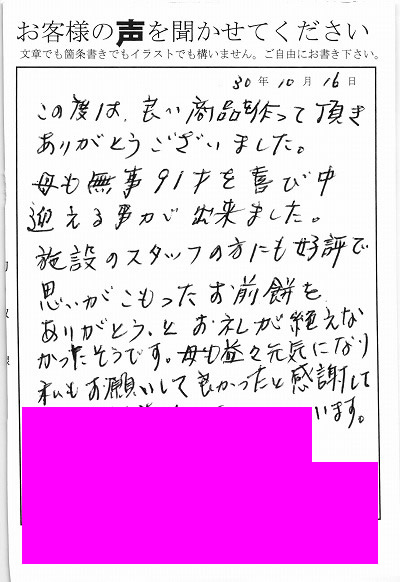 お客様の声を聞かせてください
文章でも箇条書きでもイラストでも構いません。ご自由にお書き下さい。
30年10月16日
この度は、良い商品を作って頂き
ありがとうございました。
母も無事91才を喜び中
迎える事が出来ました。
施設のスタッフの方にも好評で
思いがこもったお煎餅を
ありがとう、とお礼が絶えな
かったそうです。母も益々元気になり
私もお願いして良かったと感謝して
います。